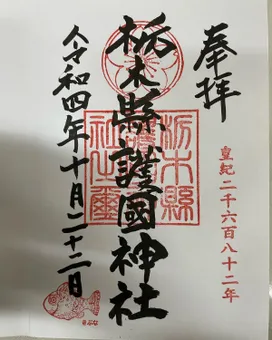 奉拝
皇紀二千六百八十二年
栃木縣護國神社
栃木縣
護國神
社之璽
令和四年十月二十二日
きぶな